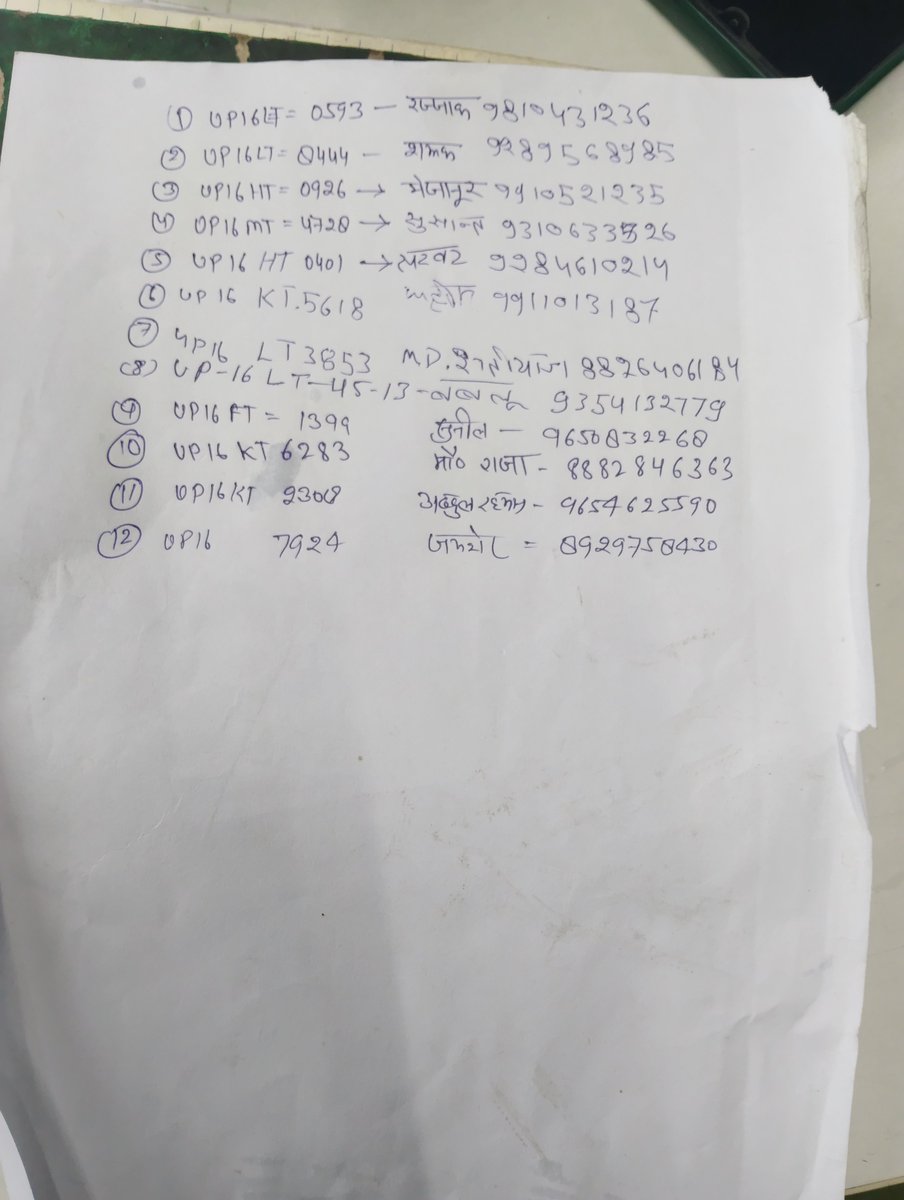 ① UP16LT = 0593 - रज्जाक 9810431236
② UP16LT = 8444 - शमक 9289568985
③ UP16HT = 0926 → मेजानूर 9910521235
④ UP16MT = 4728 → सुसान्त 9310633526
⑤ UP16 HT 0401 → सरवर 9984610214
⑥ UP16 KT.5618 9911013187
⑦ UP16 LT3853 MD. 8826406184
(8) UP-16 LT-45-13-बबलू 9354132779
⑨ UP16FT = 1399 सुनील - 9650832268
⑩ UP16KT 6283 मौ० राजा - 8882846363
⑪ UP16KT 2308 अब्दुल रहीम - 9654625590
⑫ UP16 7924 जमशेर = 8929758430